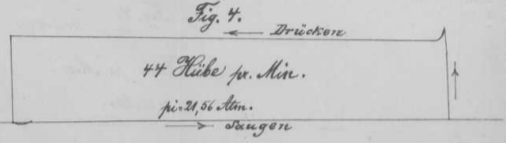 Fig. 4.
Drücken
44 Hübe pr. Min.
pi=21,56 Atm.
Saugen